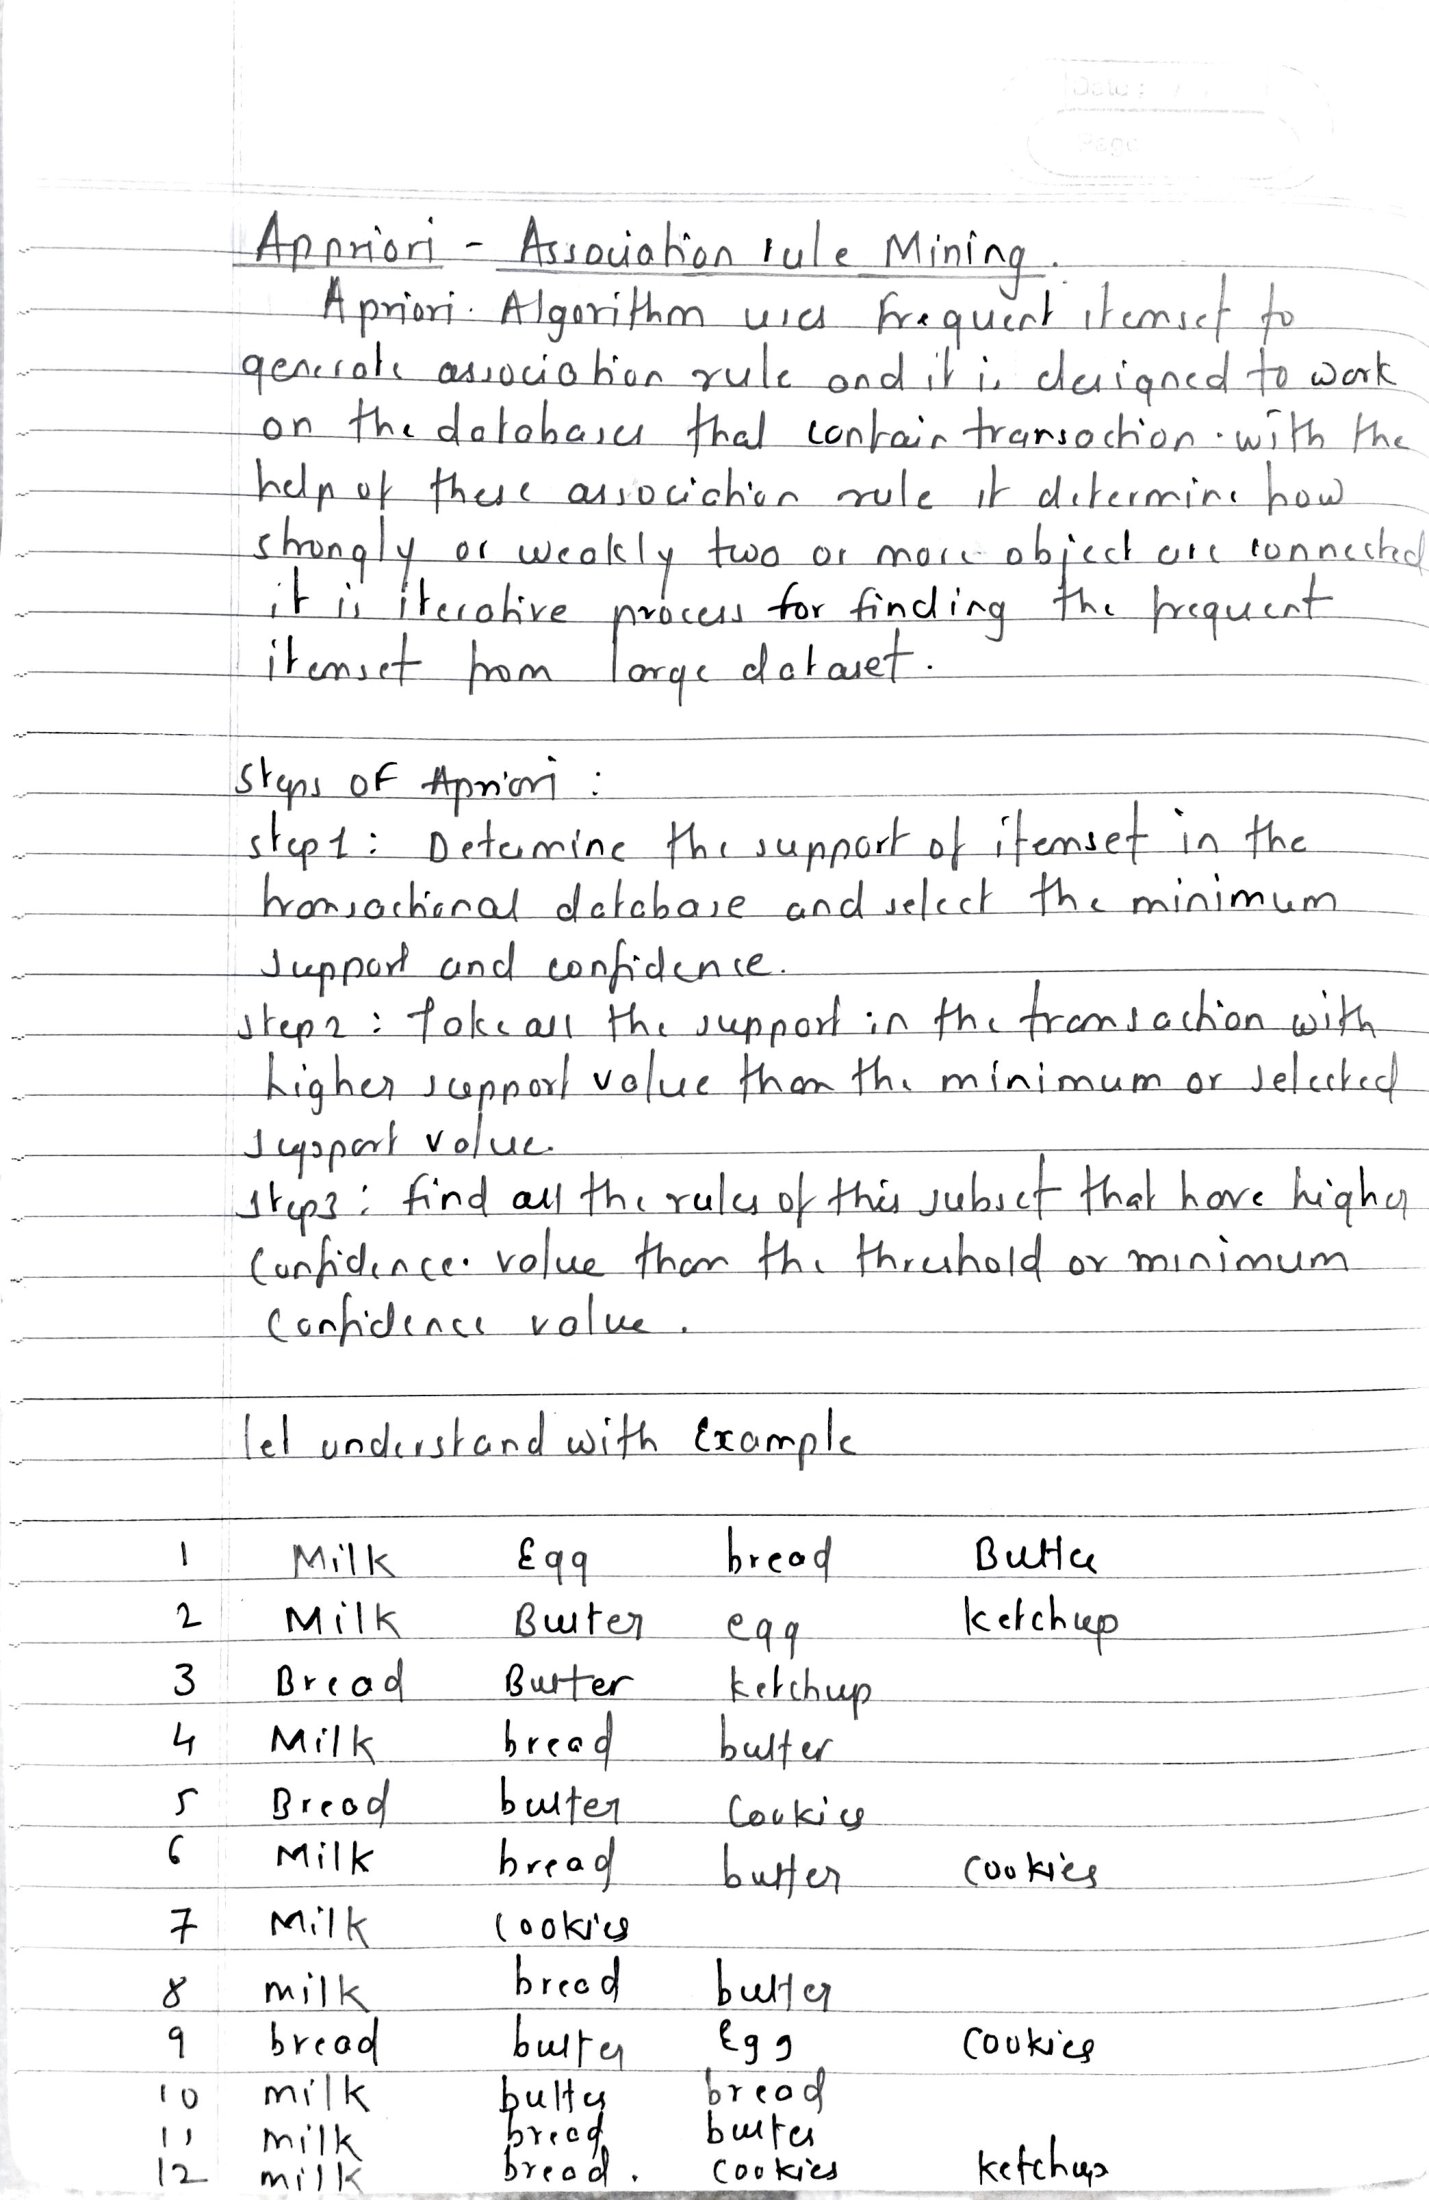 Date :
Page
Appriori - Association rule Mining.
Apriori. Algorithm uses frequent itemset to
generate association rule and it is designed to work
on the databases that contain transaction. with the
help of these association rule it determine how
strongly or weakly two or more object are connected
it is iterative process for finding the frequent
itemset from large dataset.
steps of Apriori :
step1 : Determine the support of itemset in the
transactional database and select the minimum
support and confidence.
step2 : Take all the support in the transaction with
higher support value than the minimum or selected
support value.
step3 : find all the rules of this subset that have higher
confidence. value than the threshold or minimum
confidence value.
let understand with Example
1 Milk Egg bread Butter
2 Milk Butter egg ketchup
3 Bread Butter ketchup
4 Milk bread butter
5 Bread butter Cookies
6 Milk bread butter cookies
7 Milk cookies
8 milk bread butter
9 bread butter Egg cookies
10 milk butter bread
11 milk bread butter
12 milk bread. cookies ketchup